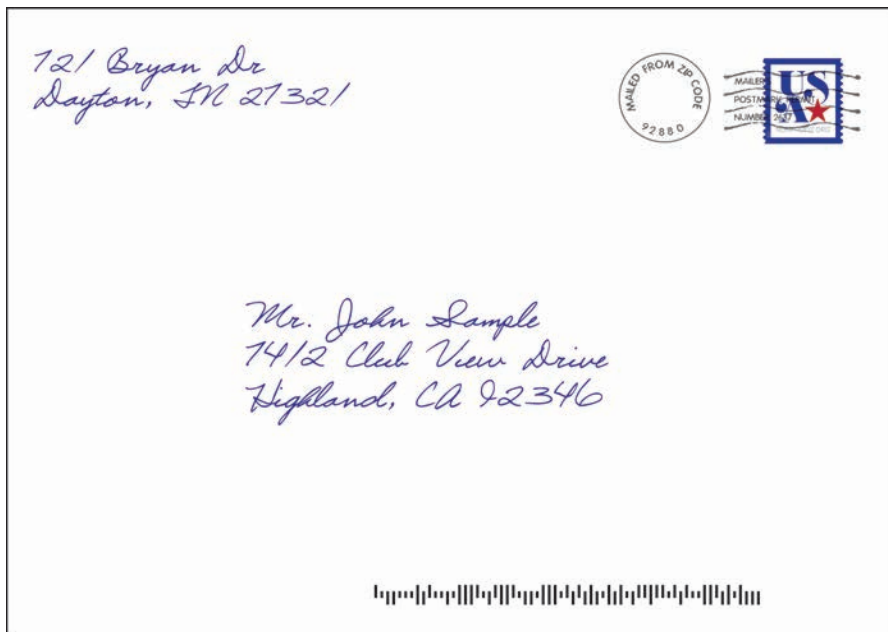 721 Bryan Dr
Dayton, TN 27321
MAILED FROM ZIP CODE
92880
MAILER
POSTMARK PERMIT
NUMBER 2617
USA
Mr. John Sample
7412 Club View Drive
Highland, CA 92346